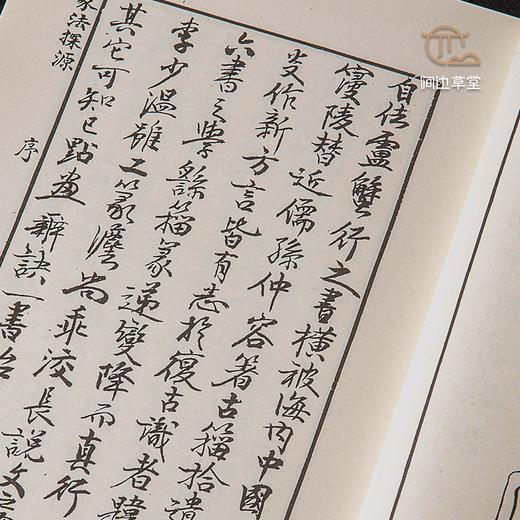 自佉盧蟹行之書橫被海內中國
寖陵替近儒孫仲容箸古籀拾遺
作新方言皆有志於復古識者韙
六書之學繇籀篆遞變降而真行
李少溫雖工篆灋尚乖洨長說文之
其它可知已點畫辨訣一書
法探源
序
间边草堂